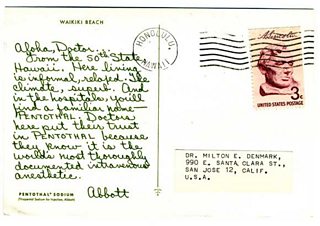 WAIKIKI BEACH
Aloha, Doctor.
From the 50th State,
Hawaii. Here living
is informal, relaxed. The
climate, superb. And
in the hospitals, you'll
find a familiar name—
PENTOTHAL. Doctors
here put their trust
in PENTOTHAL because
they know it is the
world's most thoroughly
documented intravenous
anesthetic.
Abbott
PENTOTHAL® SODIUM
(Thiopental Sodium for Injection, Abbott)
HONOLULU,
HAWAII
A. Lincoln
3¢
UNITED STATES POSTAGE
DR. MILTON E. DENMARK,
990 E. SANTA CLARA ST.,
SAN JOSE 12, CALIF.
U.S.A.